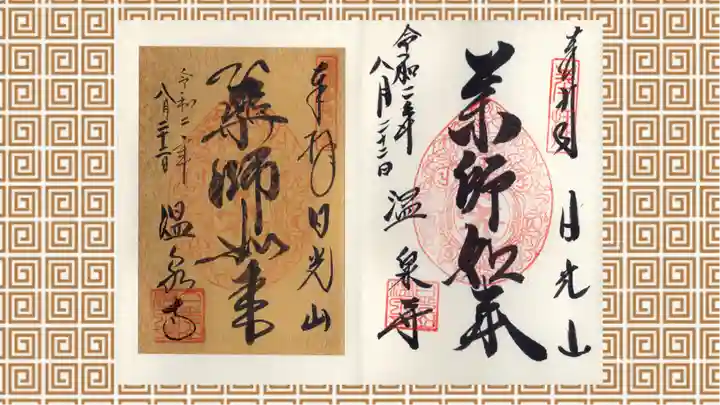 奉拝 日光山
薬師如来
令和二年
八月二十二日
温泉寺
奉拝
日光山
薬師如来
令和二年
八月二十二日
温泉寺